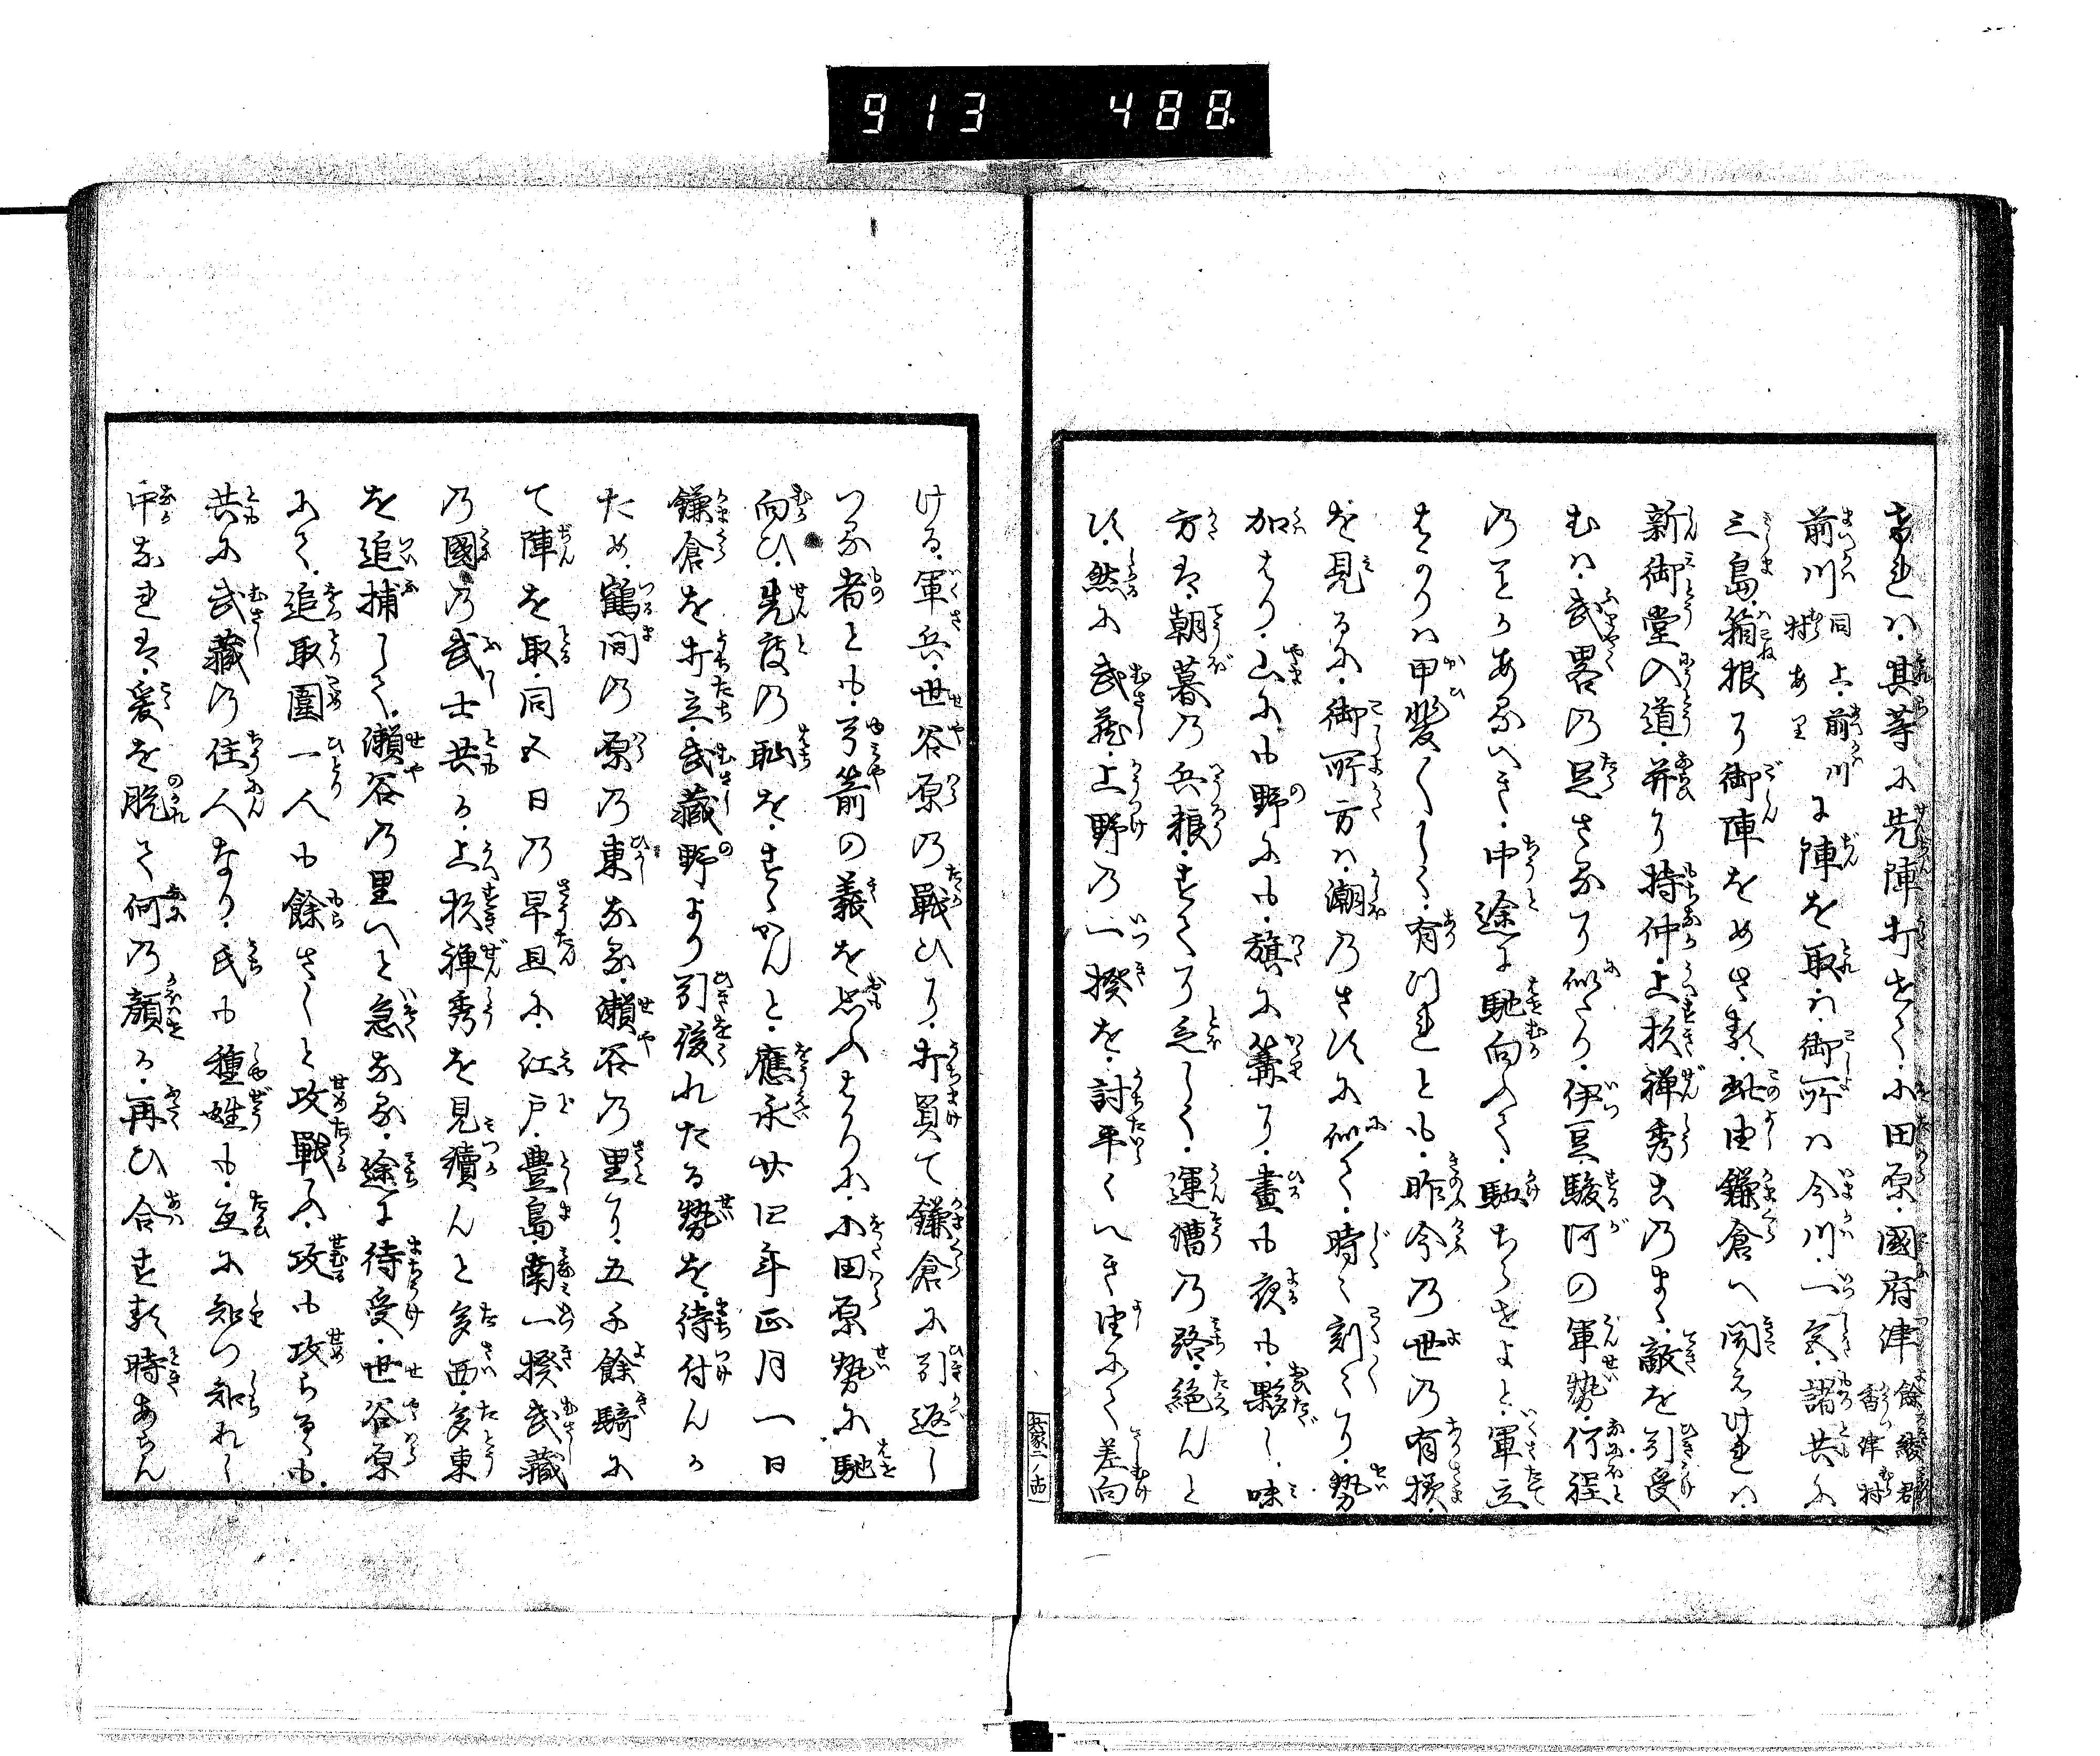 913 488
されハ其等に先陣打せて小田原國府津 餘綾郡 香津村
前川 同上前川村あり に陣を取ハ御所ハ今川一家諸共に
三島箱根に御陣をめさる此由鎌倉へ聞えけれハ
新御堂入道并に持仲上杉禅秀出のまゝ敵を引受
むハ武畧の足さるに似たり伊豆駿河の軍勢何程
の事かあるへき中途に馳向ふて馳ちらせよと軍立
はかりハ甲斐〱しく有つれとも昨今の世の有様
を見るに御所方ハ潮のさすに似て時々刻々に勢
加はり山にも野にも旗に篝に晝も夜も夥し味
方は朝暮の兵粮すてに乏しく運漕の路絶んと
す然に武蔵上野の一揆を討平くへき由にて差向
兵家二ノ
ける軍兵世谷原の戰ひに打負て鎌倉に引返し
つる者とも弓箭の義を思ふはかりに小田原勢に馳
向ひ先度の恥をすゝかんと應永廿四年正月一日
鎌倉を打立武藏野より引後れたる勢を待付んか
ため鶴間の原の東なる瀬谷の里に五千餘騎に
て陣を取同五日の早旦に江戸豊島南一揆武藏
の國の武士共か上杉禅秀を見續んと多西多東
を追捕して瀬谷の里へと急なる途に待受世谷原
にて追取圍一人も餘さしと攻戰ふ攻も攻らるゝも
共に武藏の住人なり氏も種姓も互に知つ知れし
中なれは爰を脱て何の顔か再ひ合する時あらん